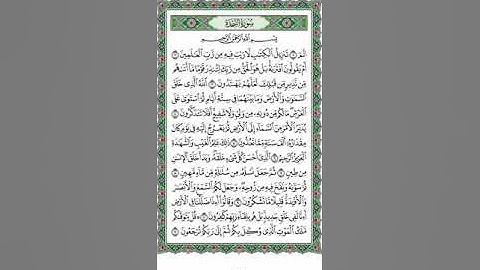 سُورَةُ السَّجْدَةِ
بِسْمِ اللَّهِ الرَّحْمَٰنِ الرَّحِيمِ
الٓمٓ ١ تَنزِيلُ ٱلْكِتَٰبِ لَا رَيْبَ فِيهِ مِن رَّبِّ ٱلْعَٰلَمِينَ ٢
أَمْ يَقُولُونَ ٱفْتَرَىٰهُ بَلْ هُوَ ٱلْحَقُّ مِن رَّبِّكَ لِتُنذِرَ قَوْمًا مَّآ أَتَىٰهُم
مِّن نَّذِيرٍ مِّن قَبْلِكَ لَعَلَّهُمْ يَهْتَدُونَ ٣ ٱللَّهُ ٱلَّذِى خَلَقَ
ٱلسَّمَٰوَٰتِ وَٱلْأَرْضَ وَمَا بَيْنَهُمَا فِى سِتَّةِ أَيَّامٍ ثُمَّ ٱسْتَوَىٰ عَلَى
ٱلْعَرْشِ مَا لَكُم مِّن دُونِهِۦ مِن وَلِىٍّ وَلَا شَفِيعٍ أَفَلَا تَتَذَكَّرُونَ ٤
يُدَبِّرُ ٱلْأَمْرَ مِنَ ٱلسَّمَآءِ إِلَى ٱلْأَرْضِ ثُمَّ يَعْرُجُ إِلَيْهِ فِى يَوْمٍ كَانَ
مِقْدَارُهُۥٓ أَلْفَ سَنَةٍ مِّمَّا تَعُدُّونَ ٥ ذَٰلِكَ عَٰلِمُ ٱلْغَيْبِ وَٱلشَّهَٰدَةِ
ٱلْعَزِيزُ ٱلرَّحِيمُ ٦ ٱلَّذِىٓ أَحْسَنَ كُلَّ شَىْءٍ خَلَقَهُۥ وَبَدَأَ خَلْقَ ٱلْإِنسَٰنِ
مِن طِينٍ ٧ ثُمَّ جَعَلَ نَسْلَهُۥ مِن سُلَٰلَةٍ مِّن مَّآءٍ مَّهِينٍ ٨
ثُمَّ سَوَّىٰهُ وَنَفَخَ فِيهِ مِن رُّوحِهِۦ وَجَعَلَ لَكُمُ ٱلسَّمْعَ وَٱلْأَبْصَٰرَ
وَٱلْأَفْـِٔدَةَ قَلِيلًا مَّا تَشْكُرُونَ ٩ وَقَالُوٓا۟ أَءِذَا ضَلَلْنَا فِى ٱلْأَرْضِ
أَءِنَّا لَفِى خَلْقٍ جَدِيدٍۭ بَلْ هُم بِلِقَآءِ رَبِّهِمْ كَٰفِرُونَ ١٠ قُلْ يَتَوَفَّىٰكُم
مَّلَكُ ٱلْمَوْتِ ٱلَّذِى وُكِّلَ بِكُمْ ثُمَّ إِلَىٰ رَبِّكُمْ تُرْجَعُونَ ١١